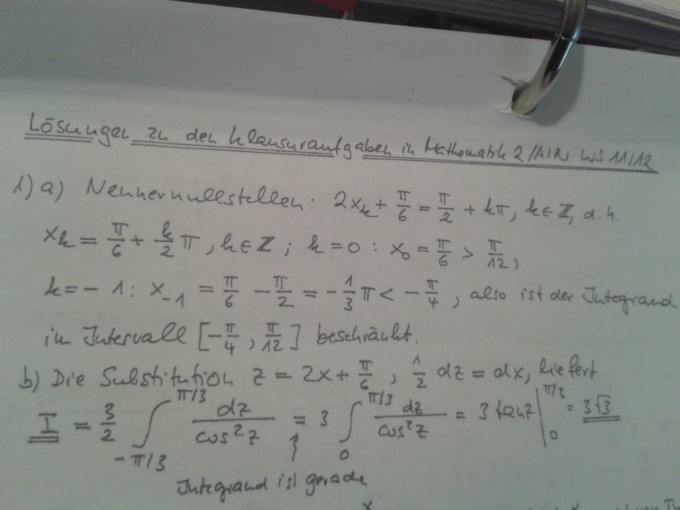 Lösungen zu den Klausuraufgaben in Mathematik 2/AIN WS 11/12
1) a) Nennernullstellen: 2xₖ + π/6 = π/2 + kπ, k∈ℤ, d.h.
xₖ = π/6 + k/2 π, k∈ℤ ; k=0 : x₀ = π/6 > π/12,
k=-1: x₋₁ = π/6 - π/2 = -1/3 π < -π/4, also ist der Integrand
im Intervall [-π/4, π/12] beschränkt.
b) Die Substitution z = 2x + π/6, 1/2 dz = dx, liefert
I = 3/2 ∫_{-π/3}^{π/3} dz/cos²z = 3 ∫_0^{π/3} dz/cos²z = 3 tanz |_0^{π/3} = 3√3
↑
Integrand ist gerade